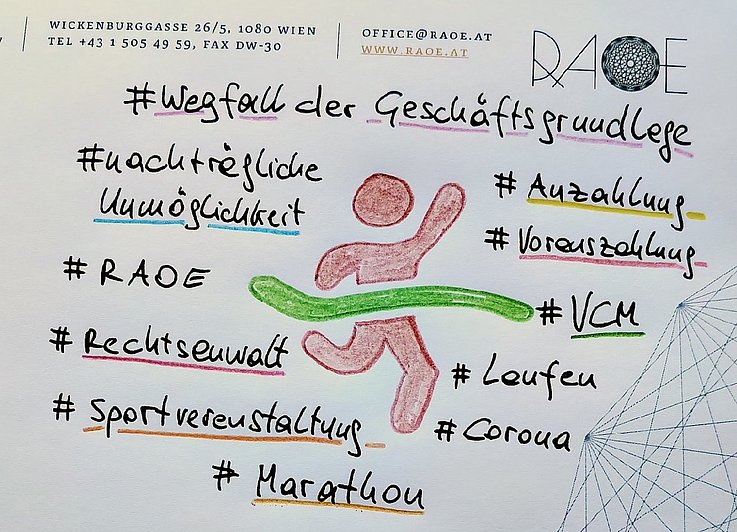 WICKENBURGGASSE 26/5, 1080 WIEN
TEL +43 1 505 49 59, FAX DW-30
OFFICE@RAOE.AT
WWW.RAOE.AT
RAOE
#Wegfall der Geschäftsgrundlage
#nachträgliche
Unmöglichkeit
# Anzahlung
# Vorauszahlung
# RAOE
# VCM
# Rechtsanwalt
# Laufen
# Sportveranstaltung
# Corona
# Marathon